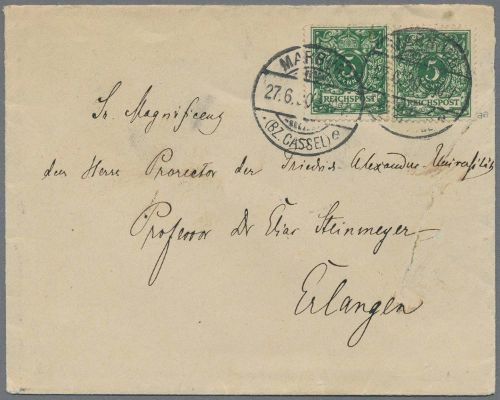 MARBURG
27.6.
(BZ. CASSEL) e
5
REICHSPOST
5
REICHSPOST
Sr. Magnificenz
dem Herrn Prorector der Friedr. Alexander-Universität
Professor Dr Elias Steinmeyer
Erlangen